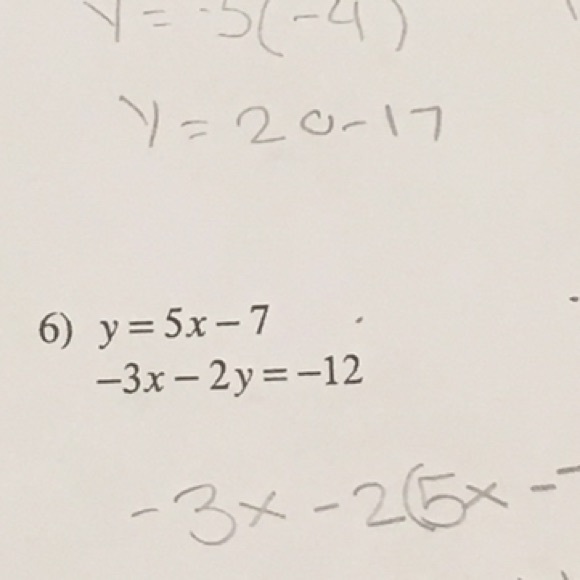 y = -5(-4)
y = 20-17
6) y = 5x - 7
-3x - 2y = -12
-3x - 2(5x -